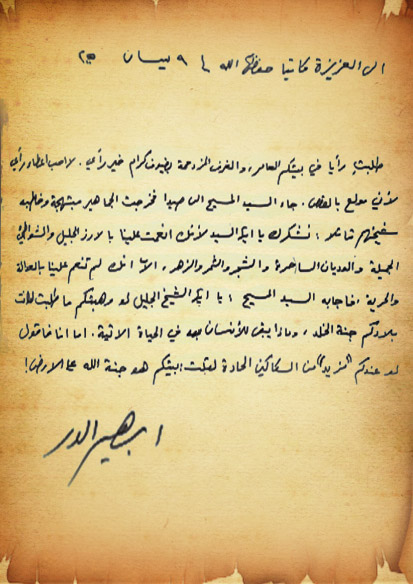 الى العزيزة كاتيا حفظها الله في ٩ نيسان
طلبتِ رأيا في بيتكم العامر، والغرف المزدحمة بضيوف كرام خير رأي. لا احب اعطاء رأي
لأني مولع بالقصص. جاء السيد المسيح الى صيدا فخرجت الجماهير مبتهجة وخاطبه
شيخهم قائلا: نشكرك يا ايها السيد لأنك انعمت علينا بالارز الجليل والشواطئ
الجميلة والوديان الساحرة والشجر والثمر والزهر، الا انك لم تنعم علينا بالعدالة
والحرية، فاجابه السيد المسيح: يا ايها الشيخ الجليل لو وهبتكم ما طلبت لكانت
بلادكم جنة الخلد، وماذا يبقى للأنسان بعد في الحياة الاتية. اما انا فاقول
لو عندكم "مزيد" من السكاكين الحادة لقلت: بيتكم هو جنة الله على الارض!